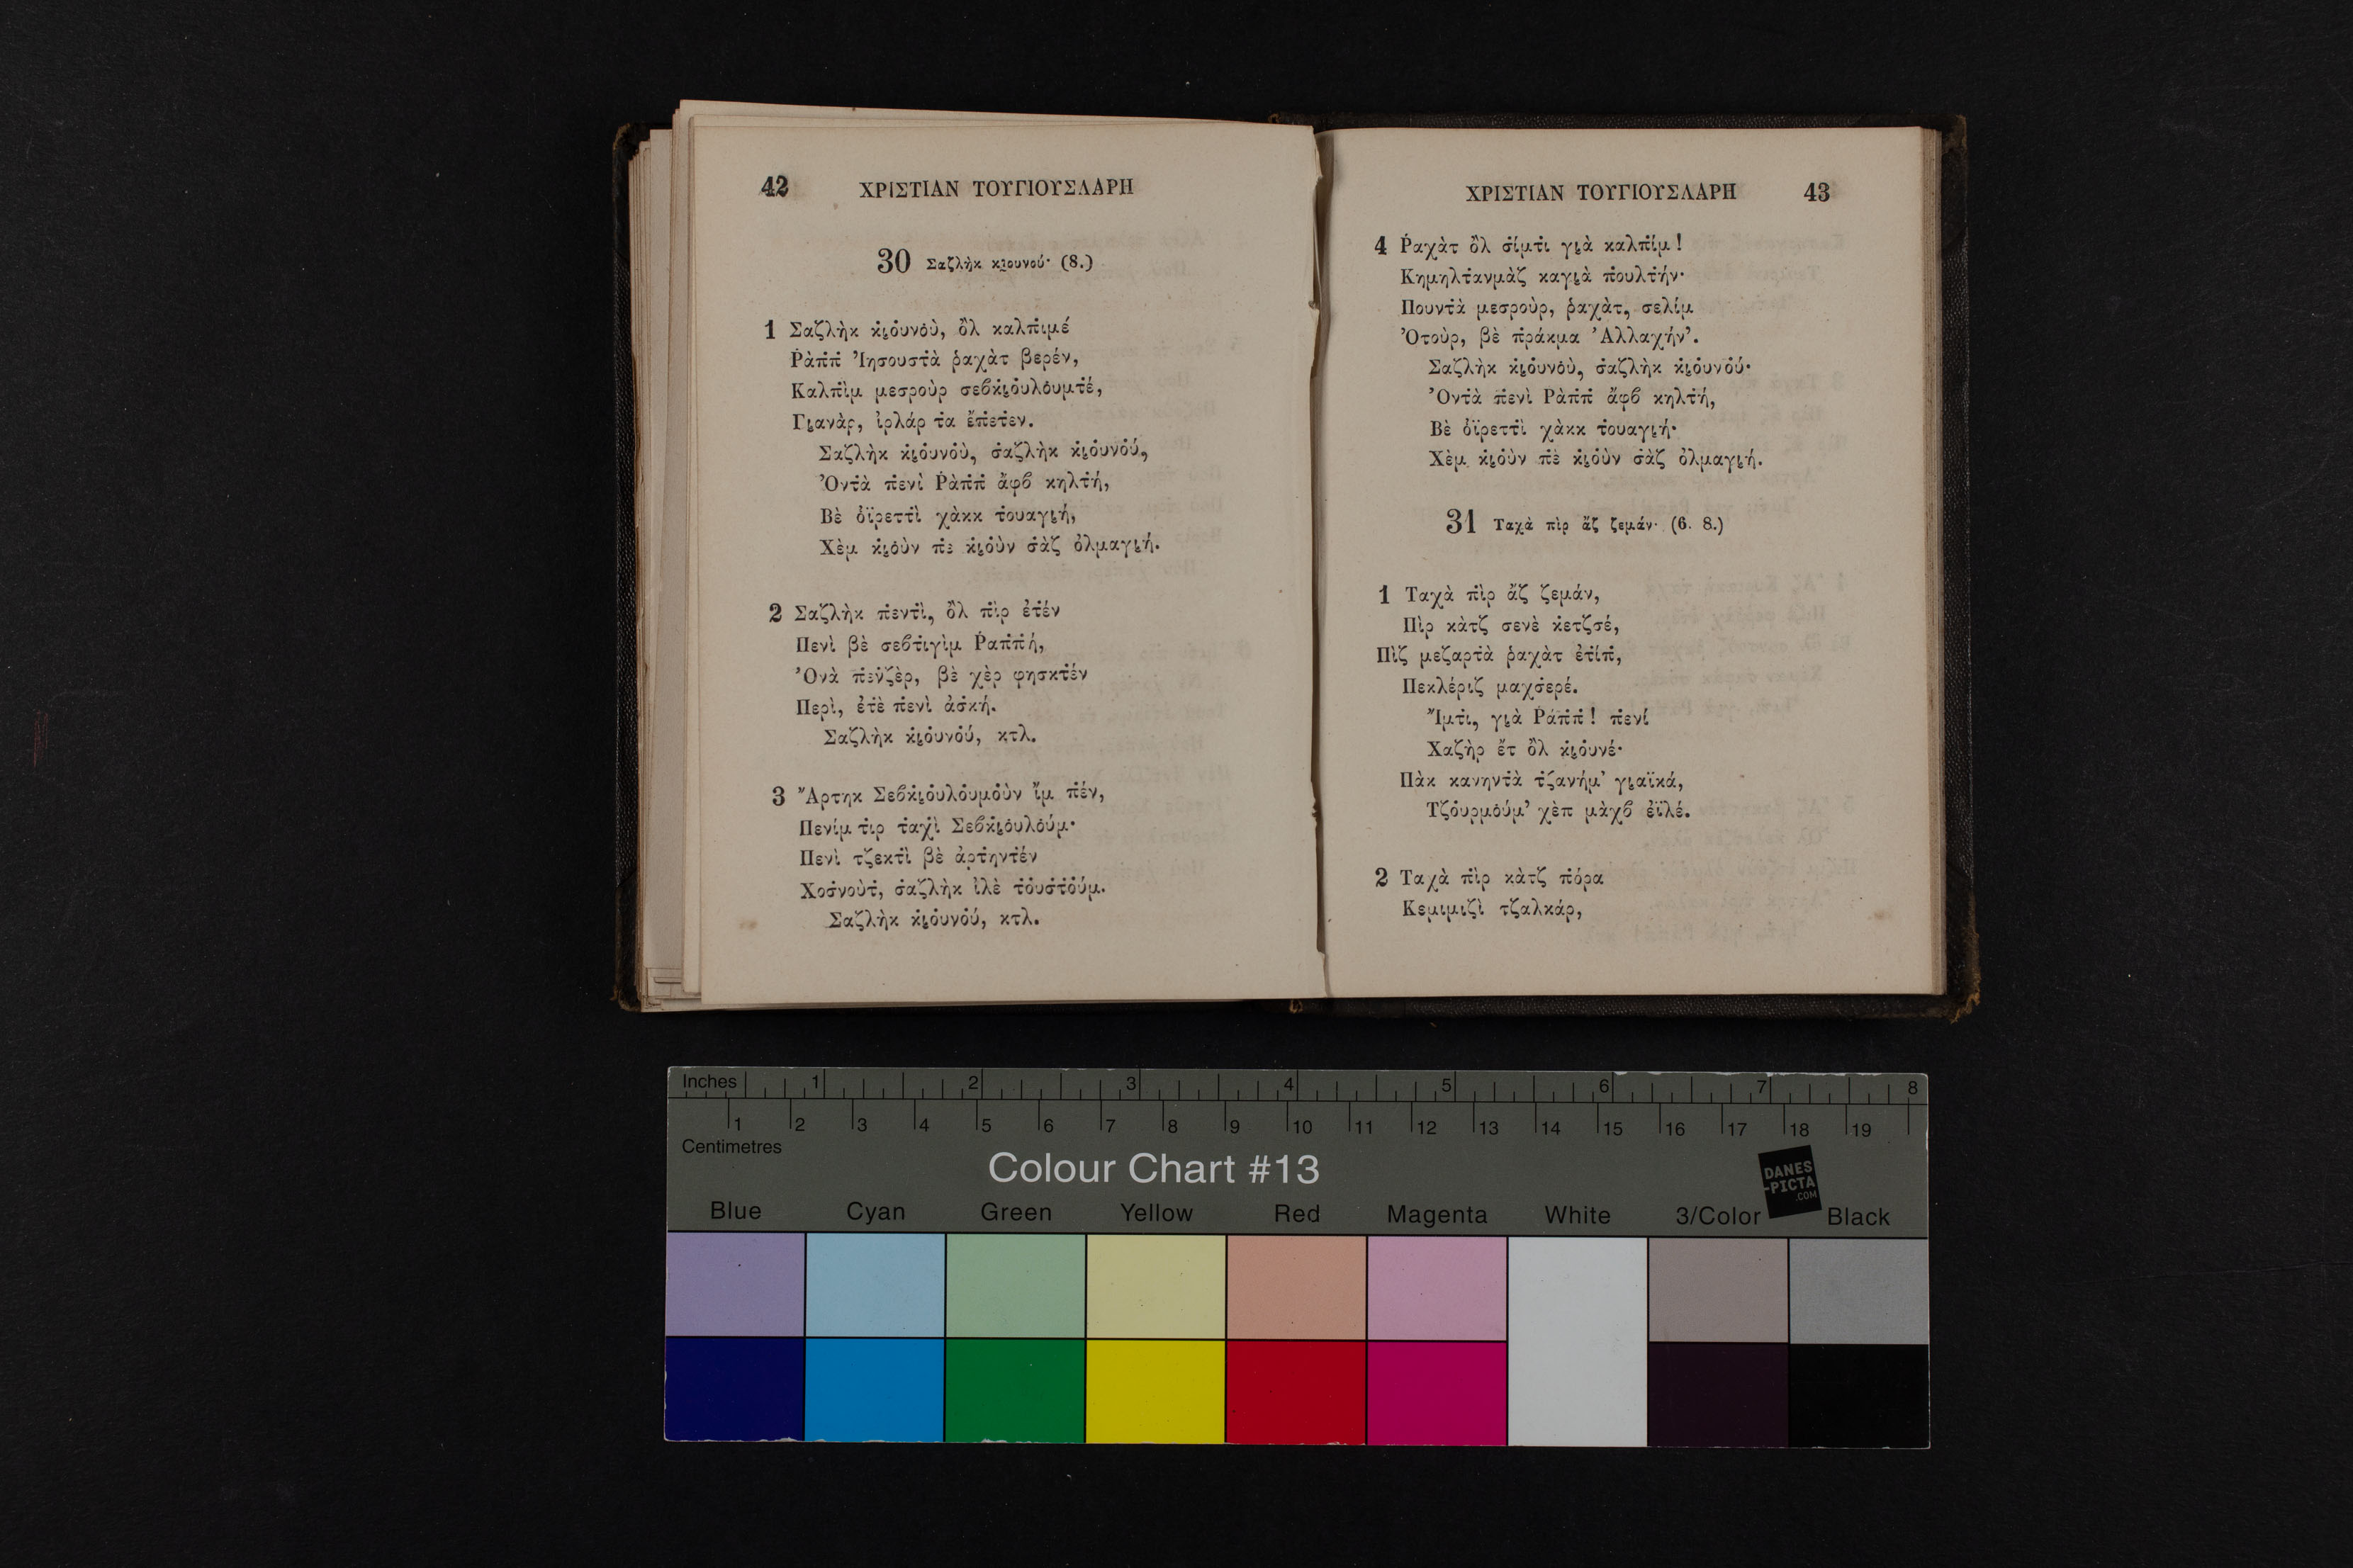 42 ΧΡΙΣΤΙΑΝ ΤΟΥΓΙΟΥΣΛΑΡΗ
30 Σαζλὴκ κι̰ουνού· (8.)
1 Σαζλὴκ κ̇ι̰ο̇υνο̇ὺ, ὂλ καλπ̇ιμέ
Ῥὰπ̇π̇ Ἰησουστ̇ὰ ῥαχὰτ βερέν,
Καλπ̇ὶμ μεσροὺρ σεβκ̇ι̰ο̇υλο̇υμτ̇έ,
Γι̰ανὰρ, ἰρλάρ τ̇α ἔπ̇ετ̇εν.
Σαζλὴκ κ̇ι̰ο̇υνο̇ὺ, σ̇αζλὴκ κ̇ι̰ο̇υνο̇ύ,
Ὀντ̇ὰ π̇ενὶ Ῥὰπ̇π̇ ἄφβ κηλτ̇ή,
Βὲ ὀ̇ϊρεττ̇ὶ χὰκκ τ̇ουαγι̰ή,
Χὲμ κ̇ι̰ο̇ὺν π̇ε κ̇ι̰ο̇ὺν σ̇ὰζ ὀλμαγι̰ή.
2 Σαζλὴκ π̇εντ̇ὶ, ὂλ π̇ὶρ ἐτ̇έν
Πενὶ βὲ σεβτ̇ιγὶμ Ῥαπ̇π̇ή,
Ὀνὰ π̇εν̇ζὲρ, βὲ χὲρ φησκτ̇έν
Περὶ, ἐτ̇ὲ π̇ενὶ ἀσ̇κή.
Σαζλὴκ κ̇ι̰ο̇υνο̇ύ, κτλ.
3 Ἄρτηκ Σεβκ̇ι̰ο̇υλο̇υμο̇ὺν ἴμ π̇έν,
Πενίμ τ̇ιρ τ̇αχὶ Σεβκ̇ι̰ο̇υλο̇ύμ·
Πενὶ τζεκτ̇ὶ βὲ ἀρτ̇ηντ̇έν
Χοσ̇νοὺτ̇, σ̇αζλὴκ ἰλὲ τ̇ο̇υστ̇ο̇ύμ.
Σαζλὴκ κ̇ι̰ο̇υνο̇ύ, κτλ.
ΧΡΙΣΤΙΑΝ ΤΟΥΓΙΟΥΣΛΑΡΗ 43
4 Ῥαχὰτ ὂλ σ̇ίμτ̇ι γι̰ὰ καλπ̇ίμ!
Κημηλτ̇ανμὰζ καγι̰ὰ π̇ουλτ̇ήν·
Πουντ̇ὰ μεσροὺρ, ῥαχὰτ, σελίμ
Ὀτοὺρ, βὲ π̇ράκμα Ἀλλαχήν'.
Σαζλὴκ κ̇ι̰ο̇υνο̇ὺ, σ̇αζλὴκ κ̇ι̰ο̇υνο̇ύ·
Ὀντ̇ὰ π̇ενὶ Ῥὰπ̇π̇ ἄφβ κηλτ̇ή,
Βὲ ὀ̇ϊρεττ̇ὶ χὰκκ τ̇ουαγι̰ή·
Χὲμ κ̇ι̰ο̇ὺν π̇ὲ κ̇ι̰ο̇ὺν σ̇ὰζ ὀλμαγι̰ή.
31 Ταχὰ πὶρ ἄζ ζεμάν· (6. 8.)
1 Ταχὰ π̇ὶρ ἄζ ζεμάν,
Πὶρ κὰτζ σενὲ κ̇ετζσέ,
Πὶζ μεζαρτ̇ὰ ῥαχὰτ ἐτ̇ίπ̇,
Πεκλέριζ μαχσ̇ερέ.
Ἴμτ̇ι, γι̰ὰ Ῥάπ̇π̇! π̇ενί
Χαζὴρ ἔτ ὂλ κ̇ι̰ο̇υνέ·
Πὰκ κανηντ̇ὰ τ̇ζανήμ' γι̰αϊκά,
Τζο̇υρμο̇ύμ' χὲπ μὰχβ ἐϊλέ.
2 Ταχὰ π̇ὶρ κὰτζ π̇όρα
Κεμιμιζὶ τζαλκάρ,
Inches 1 2 3 4 5 6 7 8
1 2 3 4 5 6 7 8 9 10 11 12 13 14 15 16 17 18 19
Centimetres
Colour Chart #13
DANES
-PICTA
.COM
Blue Cyan Green Yellow Red Magenta White 3/Color Black